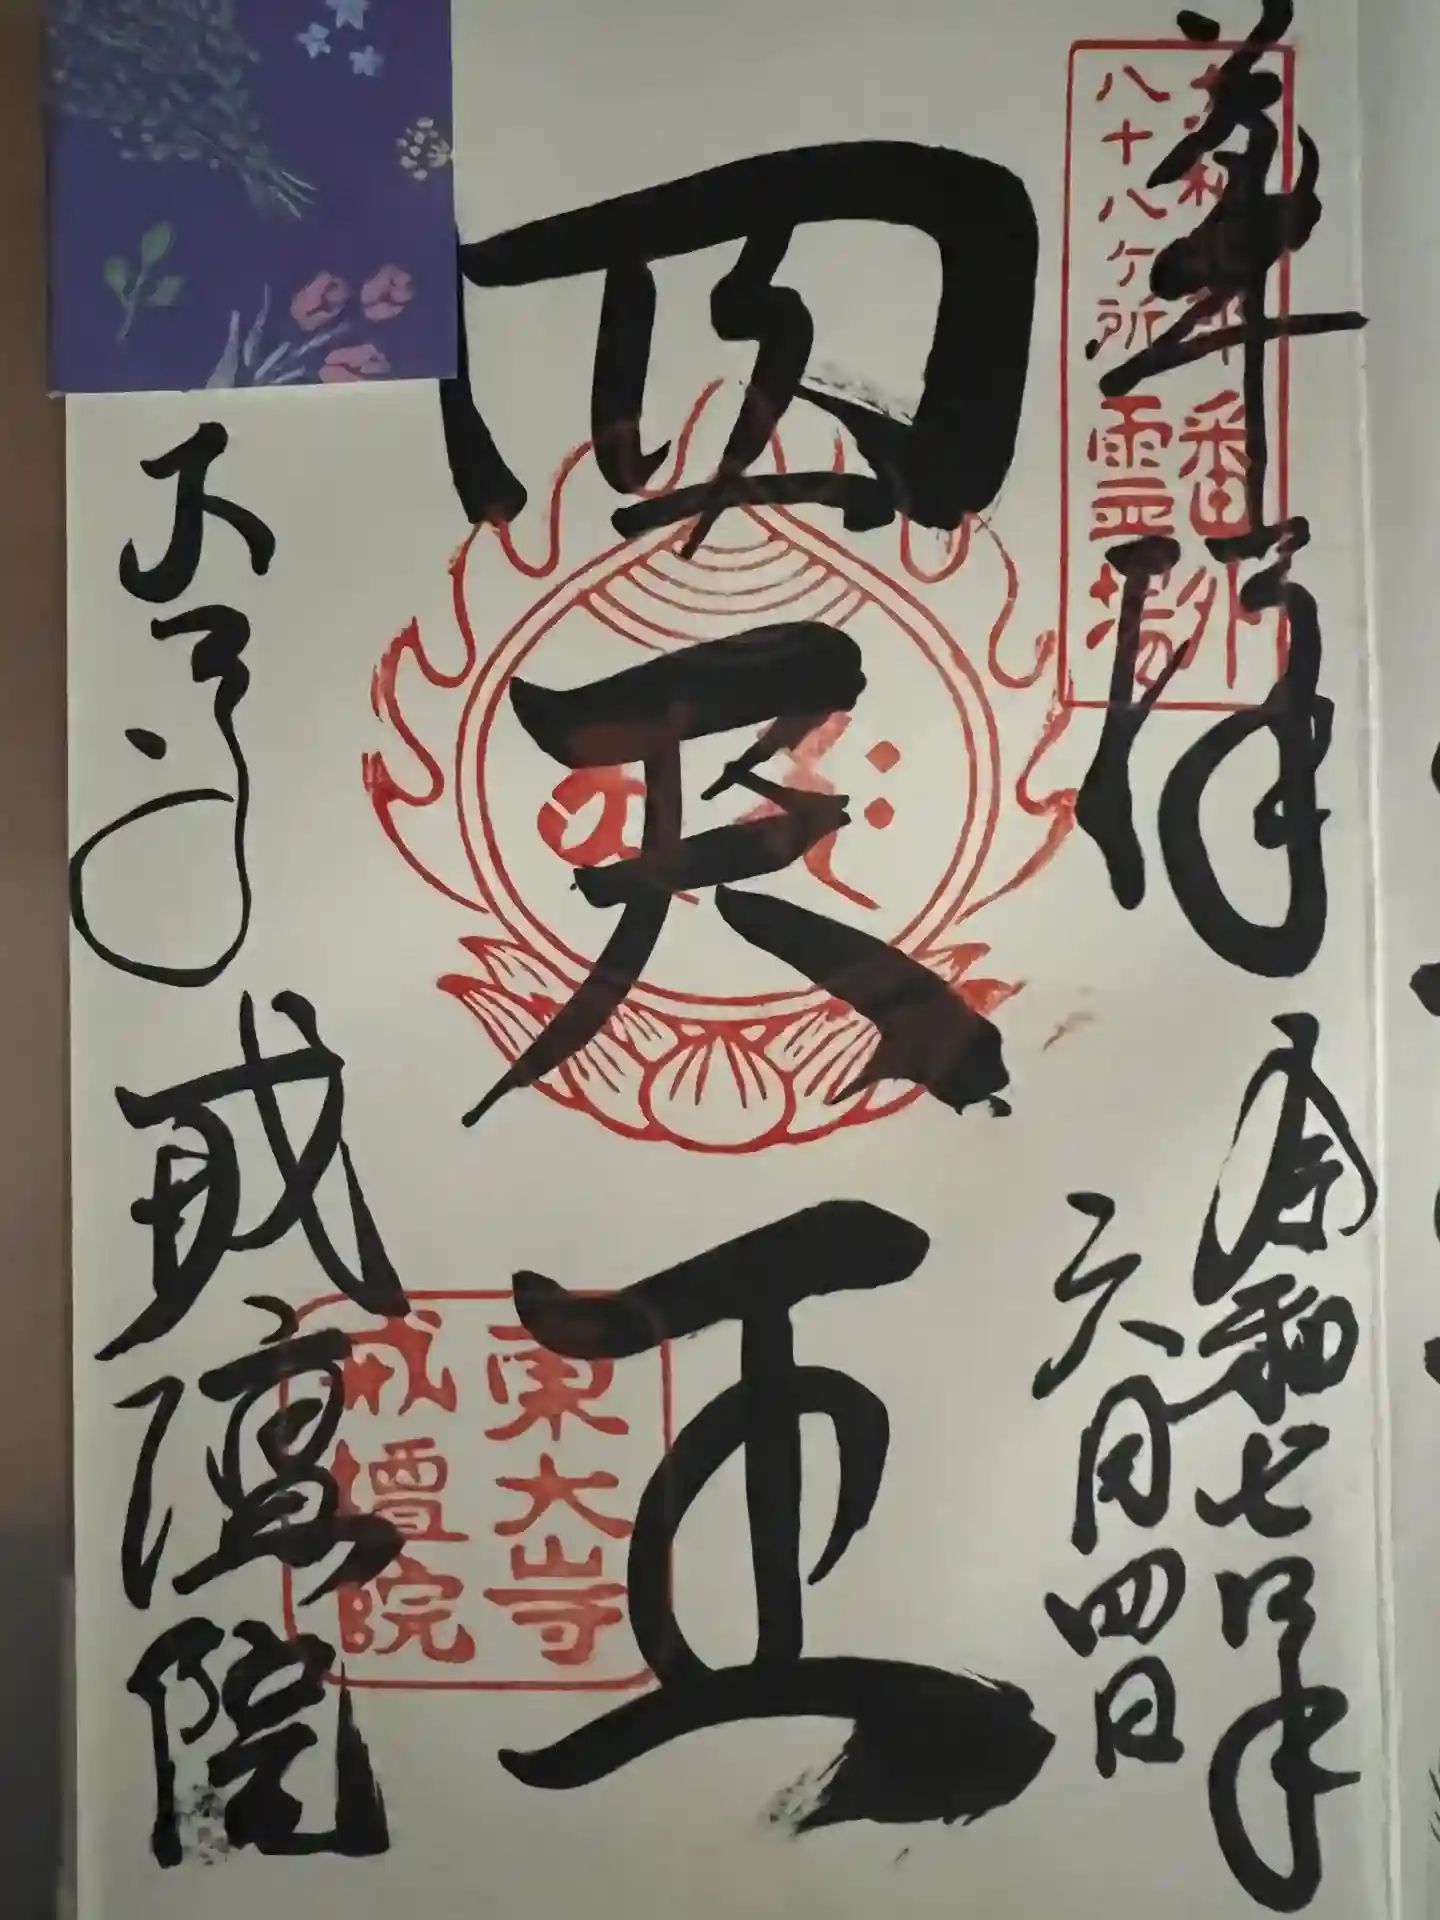 奉拝
令和七年
六月四日
大和北部番外
八十八ヶ所霊場
四天王
東大寺
戒壇院
東大寺戒壇院